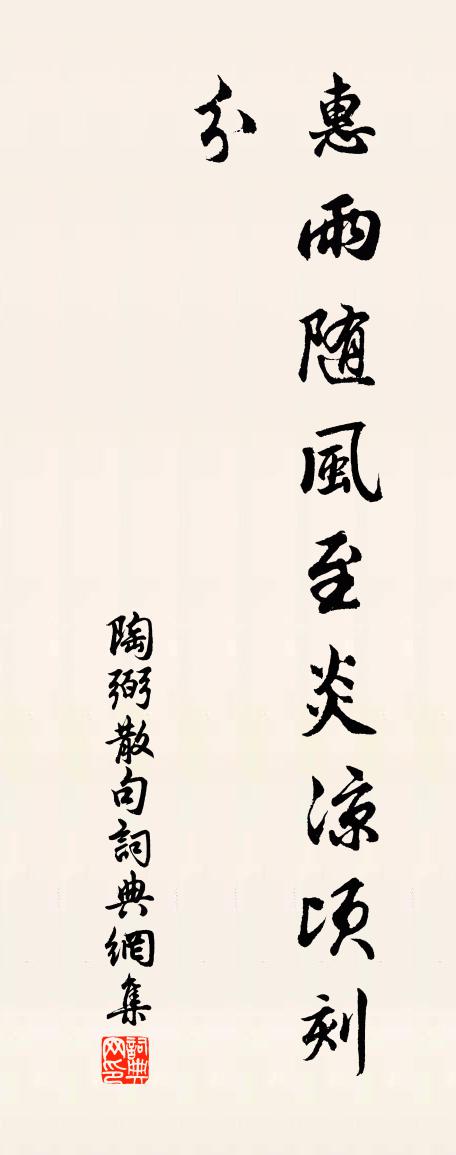 惠雨随風至炎涼頃刻
分
陶弼散句詞典網集
詞典
网印